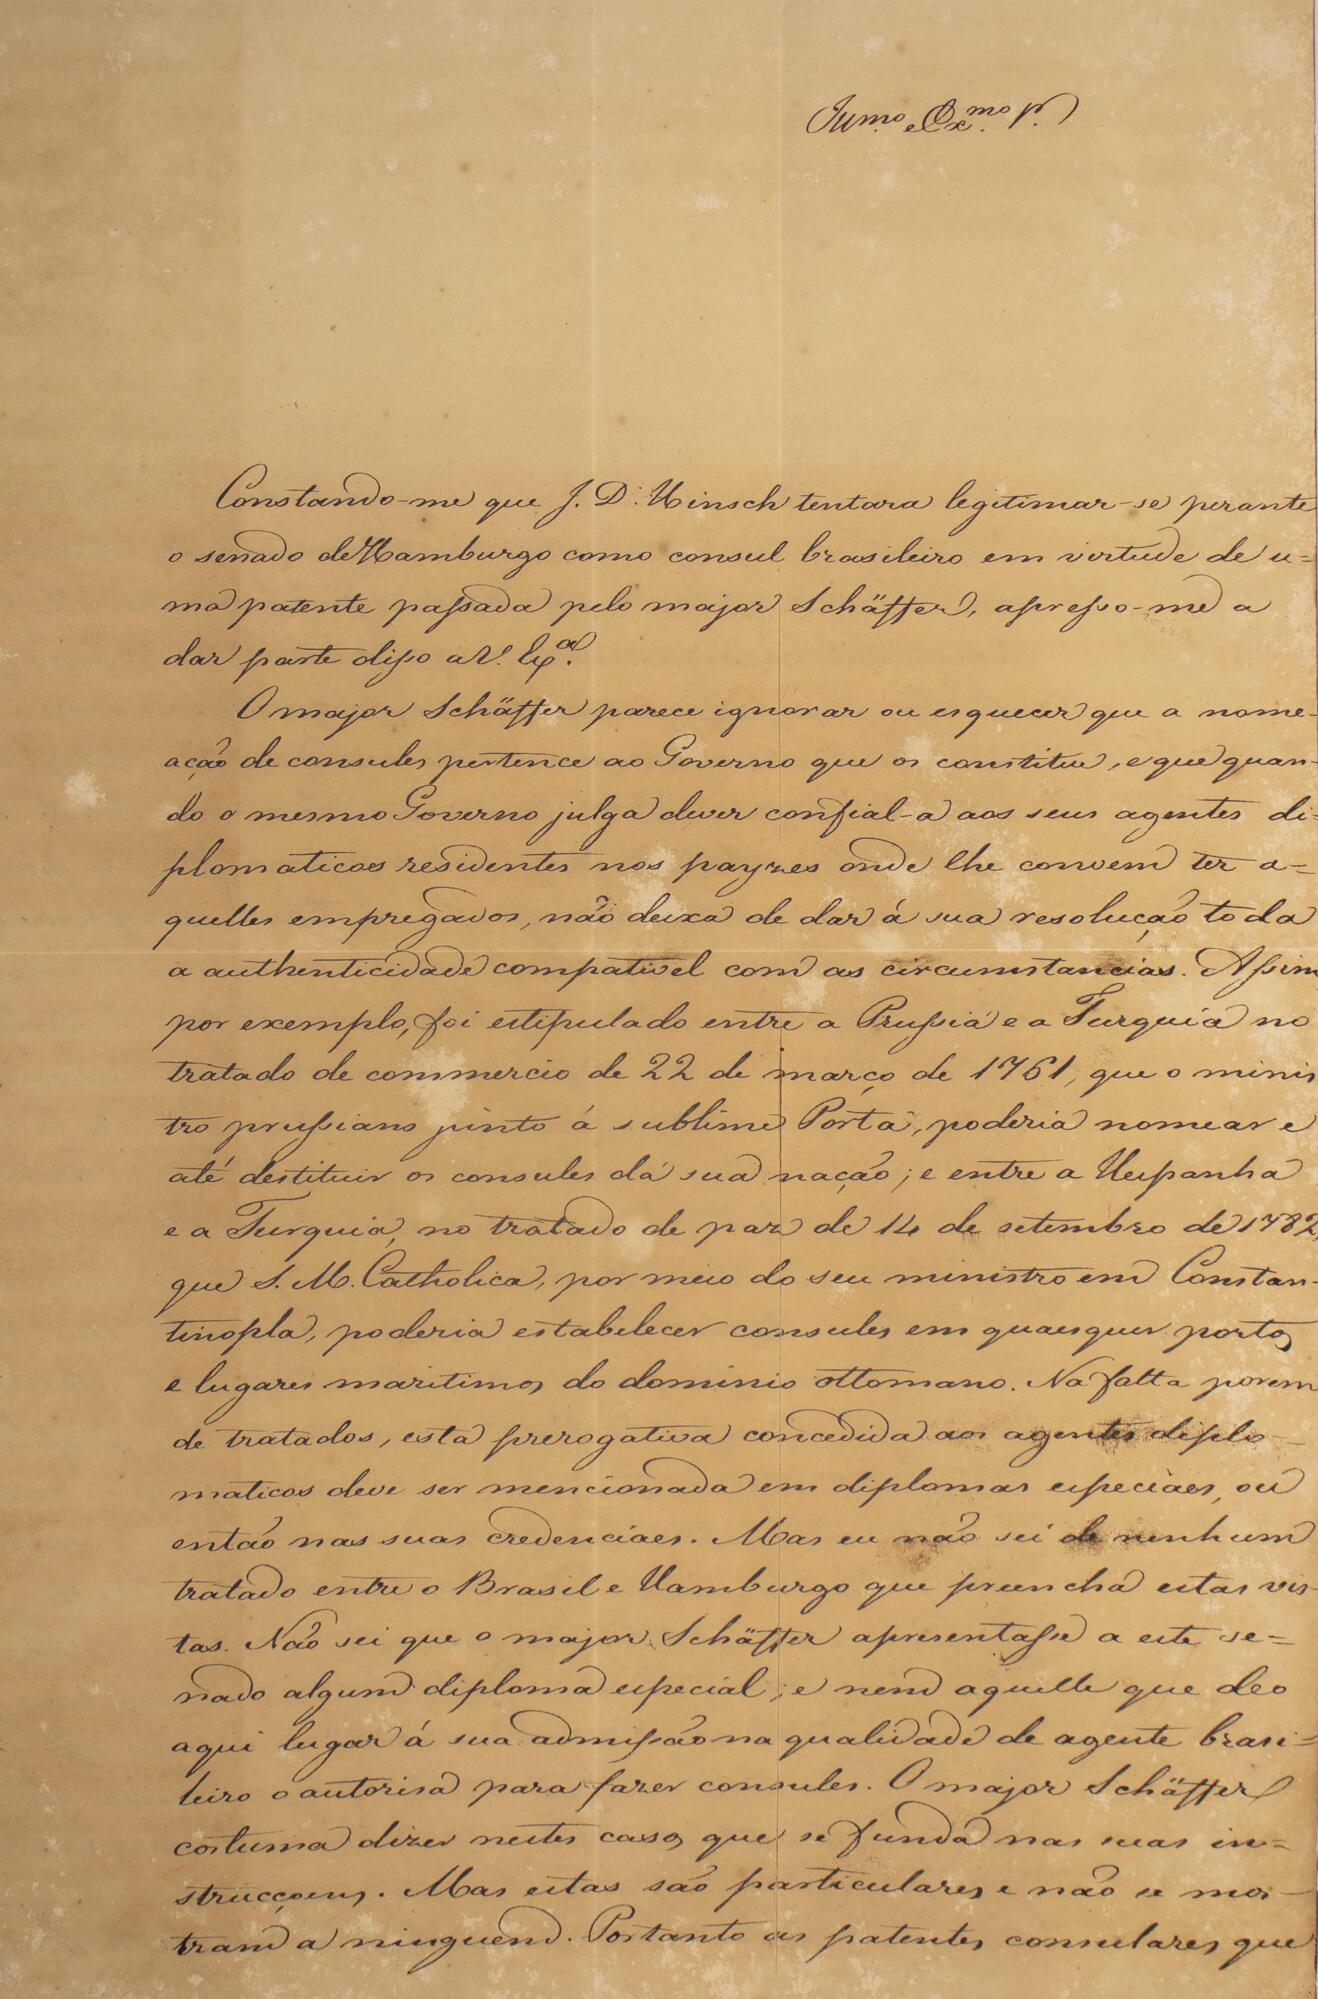 Illmo. e Exmo. Sr.
Constando-me que J. D. Hinsch tentara legitimar-se perante
o senado de Hamburgo como consul brasileiro em virtude de u=
ma patente passada pelo major Schäffer, apresso-me a
dar parte disso a V. Exa.
O major Schäffer parece ignorar ou esquecer que a nome-
ação de consules pertence ao Governo que os constitue, e que quan-
do o mesmo Governo julga dever confial-a aos seus agentes di-
plomaticos residentes nos payzes onde lhe convem ter a=
quelles empregados, não deixa de dar á sua resolução toda
a authenticidade compativel com as circumstancias. Assim
por exemplo, foi estipulado entre a Prussia e a Turquia no
tratado de commercio de 22 de março de 1761, que o minis
tro prussiano junto á sublime Porta, poderia nomear e
até destituir os consules da sua nação; e entre a Hespanha
e a Turquia, no tratado de paz de 14 de setembro de 1782,
que S. M. Catholica, por meio do seu ministro em Constan-
tinopla, poderia estabelecer consules em quaesquer portos
e lugares maritimos do dominio ottomano. Na falta porem
de tratados, esta prerogativa concedida aos agentes diplo-
maticos deve ser mencionada em diplomas especiaes, ou
então nas suas credenciaes. Mas eu não sei de nenhum
tratado entre o Brasil e Hamburgo que preencha estas vis-
tas. Não sei que o major Schäffer apresentasse a este se=
nado algum diploma especial; e nem aquelle que deo
aqui lugar á sua admissão na qualidade de agente brasi=
leiro o autorisa para fazer consules. O major Schäffer
costuma dizer nestes casos que se funda nas suas in=
strucçoens. Mas estas são particulares e não se mos-
tram a ninguem. Portanto as patentes consulares que